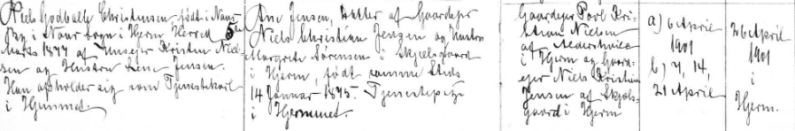 Niels Godballe Christensen, født i Naur
By i Naur Sogn i Hjerm Herred 5te
Marts 1877 af Kristen Niel-
sen og Hustru Lene Jensen.
Han opholder sig som Tjenestekarl
i Hjemmet.
Ane Jensen, Datter af Gaardejer
Niels Christian Jensen og Hustru
Margrete Sørensen i Skjelsgaard
i Hjerm, født samme Sted
14 Januar 1875. Tjenestepige
i Hjemmet.
Gaardejer Poul Kri-
stian Nielsen
af
i Hjerm og Gaard-
ejer Niels Kristian
Jensen af Skjels-
gaard i Hjerm
a) 6 April
1901
b) 7, 14,
21 April
26 April
1901
i
Hjerm.